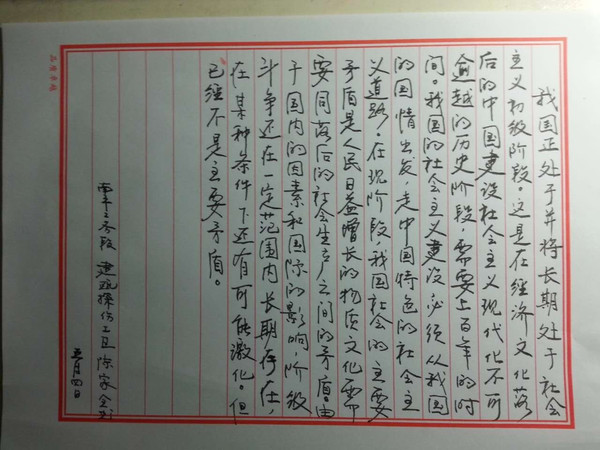 我国正处于并将长期处于社会
主义初级阶段。这是在经济文化落
后的中国建设社会主义现代化不可
逾越的历史阶段,需要上百年的时
间。我国的社会主义建设必须从我国
的国情出发,走中国特色的社会主
义道路。在现阶段,我国社会的主要
矛盾是人民日益增长的物质文化需
要同落后的社会生产之间的矛盾。由
于国内的因素和国际的影响,阶级
斗争还在一定范围内长期存在,
在某种条件下还有可能激化。但
已经不是主要矛盾。
南平工务段 建瓯探伤工区 陈家
五月四日